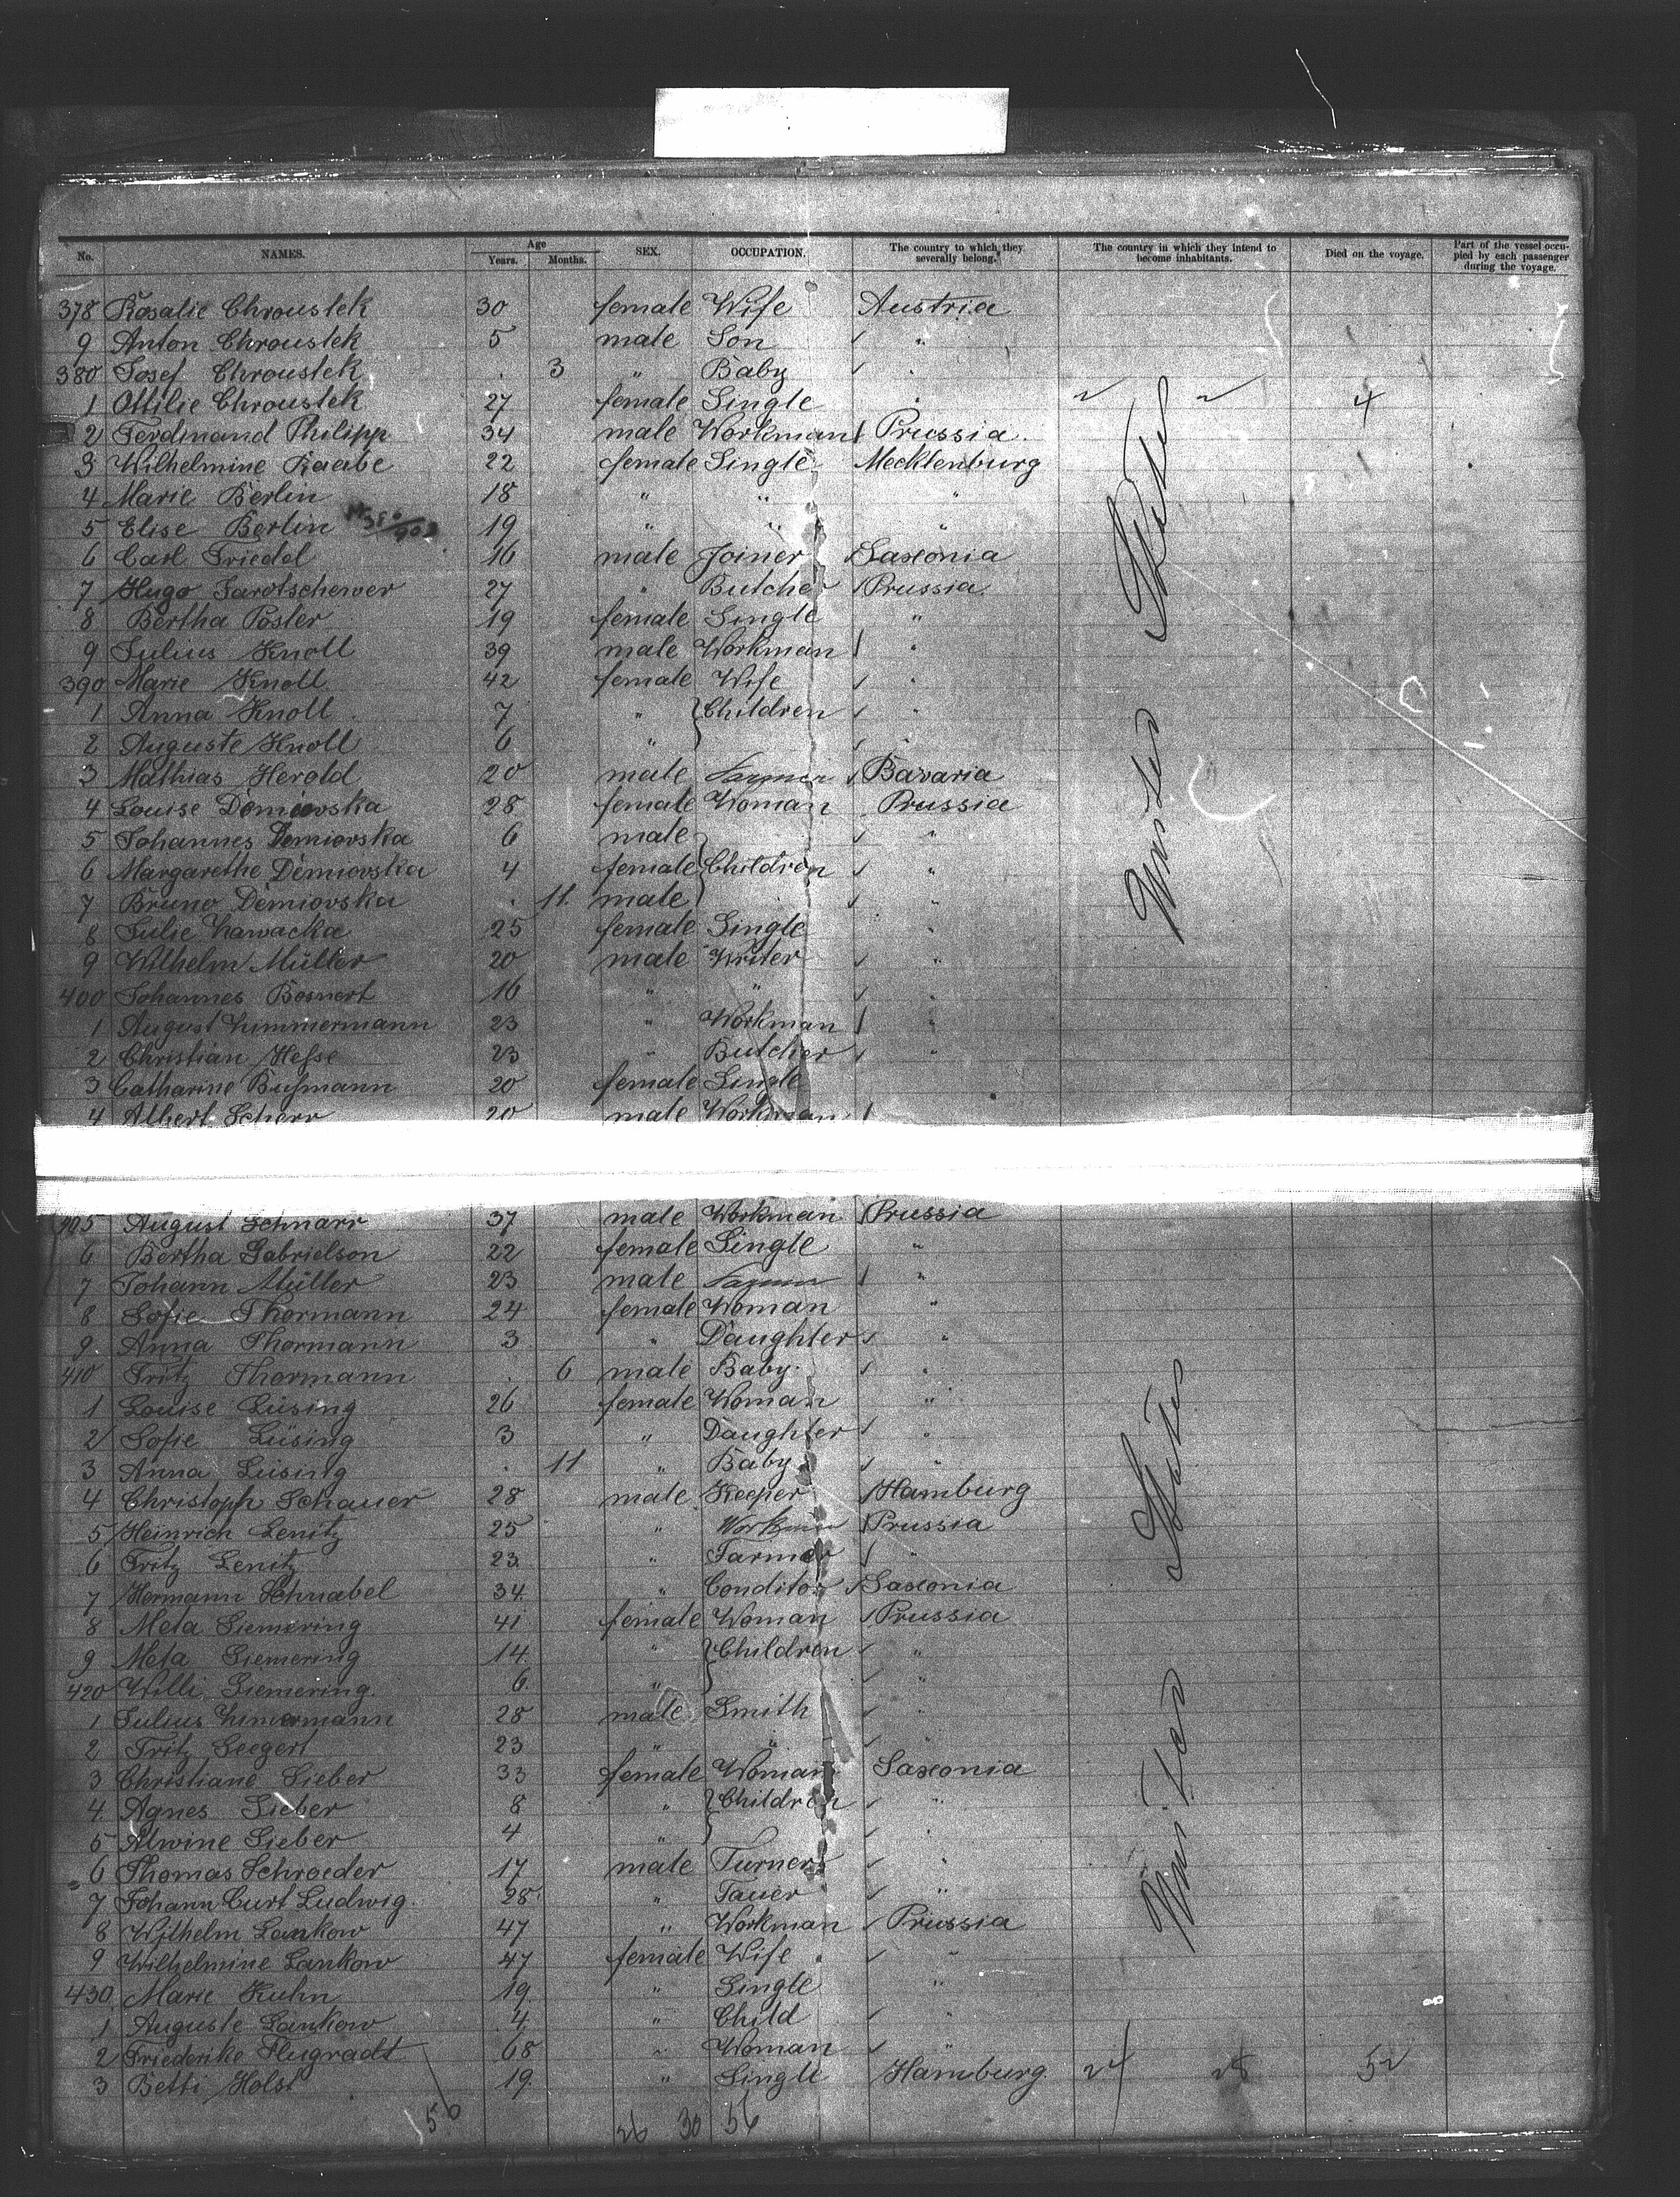 No. NAMES. Age Years. Months. SEX. OCCUPATION. The country to which they severally belong. The country in which they intend to become inhabitants. Died on the voyage. Part of the vessel occupied by each passenger during the voyage.
378 Rosalie Chroustek 30 female Wife Austria
9 Anton Chroustek 5 male Son "
380 Josef Chroustek . 3 " Baby "
1 Ottilie Chroustek 27 female Single " 2 2 4
2 Ferdinand Philipp 34 male Workman Prussia.
3 Wilhelmine Raabe 22 female Single Mecklenburg
4 Marie Berlin 18 " " "
5 Elise Berlin 19 " " "
6 Carl Friedel 16 male Joiner Saxonia
7 Hugo 27 " Butcher Prussia
8 Bertha Poster 19 female Single "
9 Julius Knoll 39 male Workman "
390 Marie Knoll 42 female Wife "
1 Anna Knoll 7 " Children "
2 Auguste Knoll 6 "
3 Mathias Herold 20 male Farmer Bavaria
4 Louise Demiovska 28 female Woman Prussia
5 Johannes Demiovska 6 male "
6 Margarethe Demiovska 4 female Children "
7 Bruno Demiovska . 11 male "
8 Julie Zawacka 25 female Single "
9 Wilhelm Müller 20 male Writer "
400 Johannes Bosnert 16 " " "
1 August Zimmermann 23 " Workman "
2 Christian Hesse 23 " Butcher "
3 Catharine Bußmann 20 female Single
4 Albert Scherr 20 male Workman
United States
405 August Schnarr 37 male Workman Prussia
6 Bertha Gabrielson 22 female Single "
7 Johann Müller 23 male Farmer "
8 Sofie Thormann 24 female Woman "
9 Anna Thormann 3 " Daughter "
410 Fritz Thormann . 6 male Baby "
1 Louise Lüsing 26 female Woman "
2 Sofie Lüsing 3 " Daughter "
3 Anna Lüsing . 11 " Baby "
4 Christoph Schauer 28 male Keeper Hamburg
5 Heinrich Lenitz 25 " Workman Prussia
6 Fritz Lenitz 23 " Farmer "
7 Hermann Schnabel 34 " Conditor Saxonia
8 Meta Siemering 41 female Woman Prussia
9 Meta Siemering 14 " Children "
420 Willi Siemering 6 " "
1 Julius Zimermann 28 male Smith "
2 Fritz Seegert 23 " "
3 Christiane Sieber 33 female Woman Saxonia
4 Agnes Sieber 8 " Children "
5 Alwine Sieber 4 " "
6 Thomas Schroeder 17 male Turner "
7 Johann Curt Ludwig 28 " Tauer "
8 Wilhelm Lankow 47 " Workman Prussia
9 Wilhelmine Lankow 47 female Wife "
430 Marie Kuhn 19 " Single "
1 Auguste Lankow 4 " Child "
2 Friederike Flugradt 68 " Woman "
3 Betti Holst 19 " Single Hamburg 24 28 52
United States
56 26 30 56